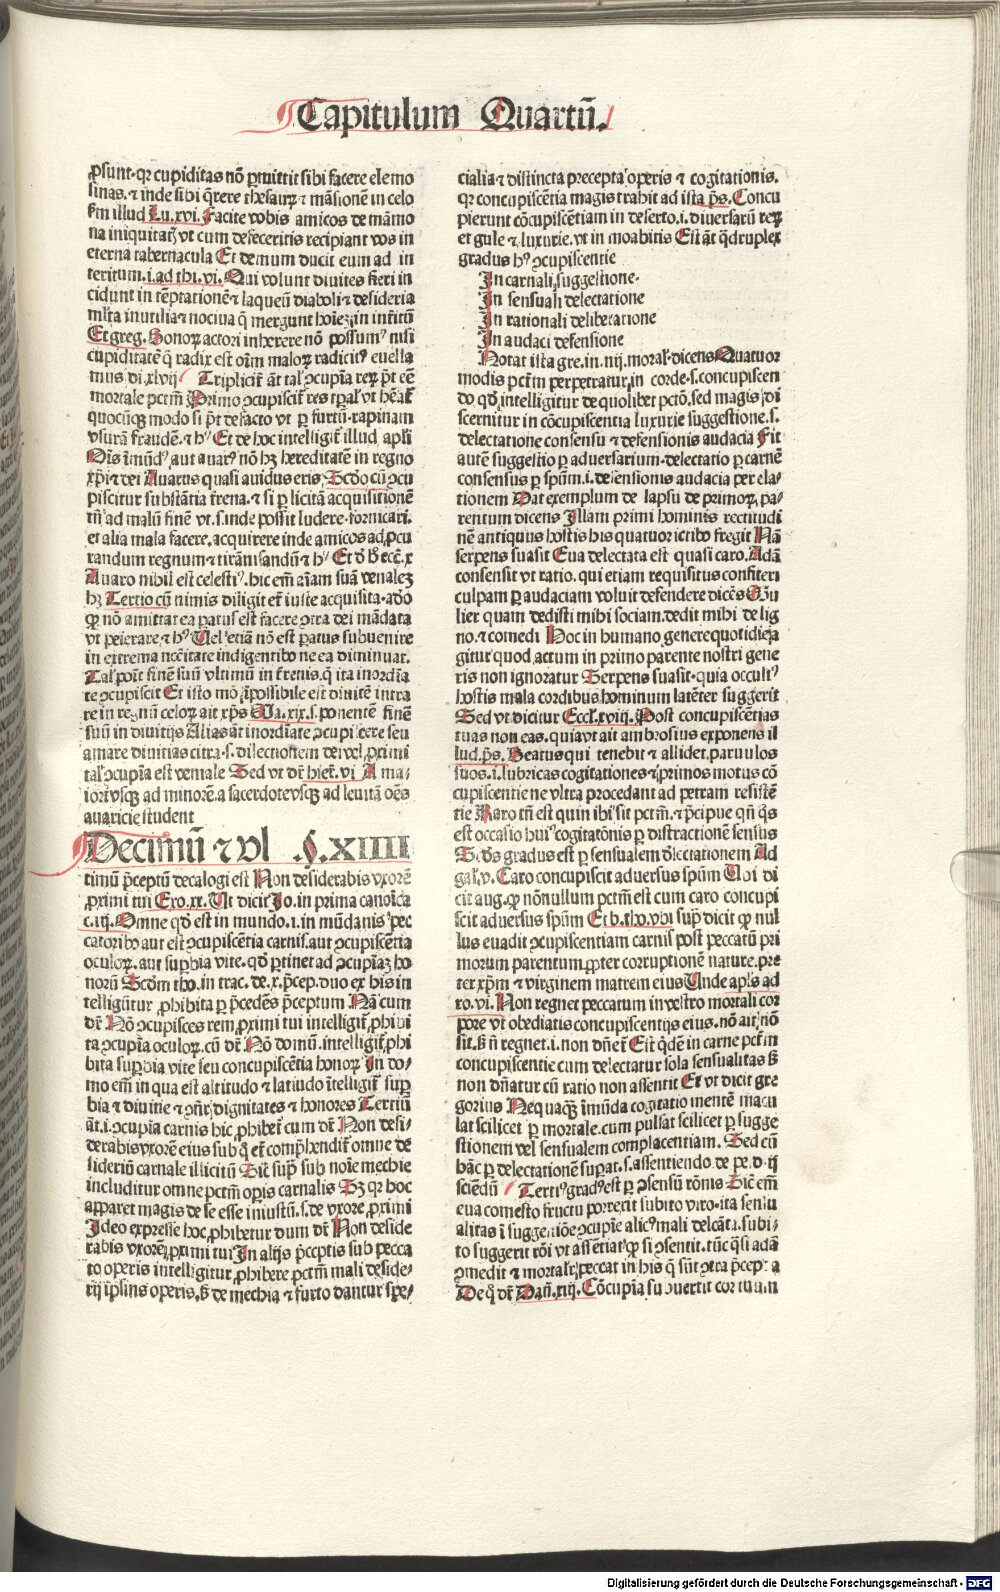 Capitulum Quartū.
ꝓsunt· qꝛ cupiditas nō ꝑmittit sibi facere elemo
sinas. ⁊ inde sibi q̄rere thesauꝝ ⁊ māsionē in celo
fm illud Lu. xvi. Facite vobis amicos de māmo
na iniquitatꝭ vt cum defeceritis recipiant vos in
eterna tabernacula Et demum ducit eum ad in
teritum. i. ad thi. vi. Qui volunt diuites fieri in
cidunt in tēptationē ⁊ laqueū diaboli ⁊ desideria
mĺta inutilia ⁊ nociua q̄ mergunt hoīeꝫ in infitū
Et greg. Honoꝝ actori inherere nō possumꝰ nisi
cupiditatē q̄ radix est oīm maloꝝ radicitꝰ euella
mus di. xlvij Tripliciṫ āt taĺ ꝯcupīa reꝝ pt̄ eē
mortale pctm̄ Primo ꝯcupisciṫ res tꝑaĺ vt hēat̄
quocūqꝫ modo si pt̄ de facto vt ꝑ furtū· rapinam
vsurā fraudē. ⁊ hꝰ Et de hoc intelligiṫ illud apĺi
Oīs īmūdꝰ aut auarꝰ nō hꝫ hereditatē in regno
xp̄i ⁊ dei Auarus quasi auidus eris Scd̄o cū ꝯcu
piscitur substātia t̄rena. ⁊ si ꝑ licitā acquisitionē
tn̄ ad malū finē vt. s. inde possit ludere· fornicari.
et alia mala facere. acquirere inde amicos ad ꝓcu
randum regnum ⁊ tirānisandū ⁊ hꝰ Et d̄ ħ eccĺ. x
Auaro nihil est celestiꝰ. hic em̄ aīam suā venaleꝫ
hꝫ Tertio cū nimis diligit et̄ iuste acquisita· adeo
ꝙ nō amittat ea paratus est facere ꝯtra dei mādata
vt peierare ⁊ hꝰ Uel etiā nō est paratus subuenire
in extrema ncc̄itate indigentibꝰ ne ea diminuat.
Taĺ poīt finē suū vltimū in t̄renis. q̄ ita inordīa
te ꝯcupiscit Et isto mō īpossibile est diuitē intra
re in regnū celoꝝ ait xp̄s Ma. xix. s. ponentē finē
suū in diuitijs Alias āt inordīate ꝯcupiscere seu
amare diuitias citra. s. dilectionem dei vel ꝓximi
taĺ ꝯcupīa est veniale Sed vt dr̄ hieṙ. vi A ma⸗
iori vsqꝫ ad minorē. a sacerdote vsqꝫ ad leuitā oēs
auaricie student
Decimū ⁊ vl §. XIIII
timū p̄ceptū decalogi est Non desiderabis vxorē
ꝓximi tui Exo. xx. Ut dicit Jo. in prima canoīca
c. iij. Omne qd̄ est in mundo. i. in mūdanis pec
catoribꝰ aut est ꝯcupiscētia carnis. aut ꝯcupiscētia
oculoꝝ. aut suꝑbia vite. qd̄ ꝑtinet ad ꝯcupīaꝫ ho
norū Scd̄m tho. in trac. de. x. p̄cep. duo ex his in
telligūtur ꝓhibita ꝑ p̄cedēs p̄ceptum Nā cum
dr̄ Nō ꝯcupisces rem ꝓximi tui intelligiṫ ꝓhibi
ta ꝯcupīa oculoꝝ. cū dr̄ Nō domū. intelligiṫ ꝓhi
bita suꝑbia vite seu concupiscētia honoꝝ In do⸗
mo em̄ in qua est altitudo ⁊ latiudo ītelligiṫ suꝑ
bia ⁊ diuitie ⁊ ꝯn̄r dignitates ⁊ honores Tertiū
āt. i. ꝯcupīa carnis hic ꝓhibeṫ cum dr̄ Non desi⸗
derabis vxorē eius sub q̄ et̄ comp̄hendiṫ omne de
sideriū carnale illicitū Sic̄ sup̄ sub noīe mechie
includitur omne pctm̄ oꝑis carnalis Sꝫ qꝛ hoc
apparet magis de se esse iniustū. s. de vxore ꝓximi
Ideo expresse hoc ꝓhibetur dum dr̄ Non deside
rabis vxorē ꝓximi tui In alijs p̄ceptis sub pecca
to operis intelligitur ꝓhibere pctm̄ mali deside⸗
rij ip̄sius operis. ß de mechia ⁊ furto dantur spe⸗
cialia ⁊ distincta precepta operis ⁊ cogitationis.
qꝛ concupiscētia magis trahit ad ista pc̄s. Concu
pierunt cōcupiscētiam in deserto. i. diuersarū reꝝ
et gule ⁊ luxurie. vt in moabitis Est āt q̄druplex
gradus hꝰ ꝯcupiscentie
In carnali suggestione·
In sensuali delectatione
In rationali deliberatione
In audaci defensione
Notat ista gre. in. iiij. moraĺ· dicens Quatuor
modis pctm̄ perpetratur in corde· s. concupiscen
do qd̄ intelligitur de quolibet pctō. sed magis di
scernitur in cōcupiscentia luxurie suggestione. s.
delectatione consensu ⁊ defensionis audacia Fit
autē suggestio ꝑ aduersarium· delectatio ꝑ carnē
consensus ꝑ spm̄. i. defensionis audacia per ela⸗
tionem Dat exemplum de lapsu de primoꝝ pa⸗
rentum dicens Illam primi hominis rectitudi
nē antiquus hostis his quatuor ictibꝰ fregit Nā
serpens suasit Eua delectata est quasi caro. Adā
consensit vt ratio. qui etiam requisitus confiteri
culpam ꝑ audaciam voluit defendere dicēs Mu
lier quam dedisti mihi sociam. dedit mihi de lig
no. ⁊ comedi Hoc in humano genere quotidie a
gitur quod actum in primo parente nostri gene
ris non ignoratur Serpens suasit· quia occultꝰ
hostis mala cordibus hominum latēter suggerit
Sed vt dicitur Eccĺ. xviij. Post concupiscētias
tuas non eas. quia vt ait ambrosius exponens il
lud pˢ. Beatus qui tenebit ⁊ allidet paruulos
suos. i. lubricas cogitationes ⁊ primos motus cō
cupiscentie ne vltra procedant ad petram resistē
tie Raro tn̄ est quin ibi sit pctm̄. ⁊ p̄cipue qn̄ qˢ
est occasio huiꝰ cogitatōnis ꝑ distractionē sensus
Scd̄s gradus est ꝑ sensualem dēlectationem Ad
gaĺ. v. Caro concupiscit aduersus spm̄ Ubi di
cit aug. ꝙ nōnullum pctm̄ est cum caro concupi
scit aduersus spm̄ Et b. tho. vbi sup̄ dicit ꝙ nul
lus euadit ꝯcupiscentiam carnis post peccatū pri
morum parentum. ꝓpter corruptionē nature. pre
ter xp̄m ⁊ virginem matrem eius Unde apĺs ad
ro. vi. Non regnet peccatum in vestro mortali cor
pore vt obediatis concupiscentijs eius. nō ait nō
sit. ß n̄ regnet. i. non dn̄eṫ Est q̄dē in carne pctm̄
concupiscentie cum delectatur sola sensualitas ß
non dn̄atur cū ratio non assentit Et vt dicit gre
gorius Nequaqꝫ īmūda cogitatio mentē macu
lat scilicet ꝑ mortale. cum pulsat scilicet ꝑ sugge
stionem vel sensualem complacentiam. Sed cū
hāc ꝑ delectationē suꝑat. s. assentiendo. de pe. d. ij
sciēdū Tertiꝰ gradꝰ est ꝑ ꝯsensū rōnis Sic̄ em̄
eua comesto fructu porrexit subito viro· ita sensu
alitas ī suggestiōe ꝯcupīe alicꝰ mali delcāta. subi⸗
to suggerit rōi vt assentiat ꝙ si ꝯsentit. tūc qͣsi adā
ꝯmedit ⁊ mortaĺr peccat in his q̄ sūt ꝯtra p̄cepta
De q̄ dr̄ Dan̄. xiij. Cōcupīa subuertit cor tuum
Digitalisierung gefördert durch die Deutsche Forschungsgemeinschaft - DFG